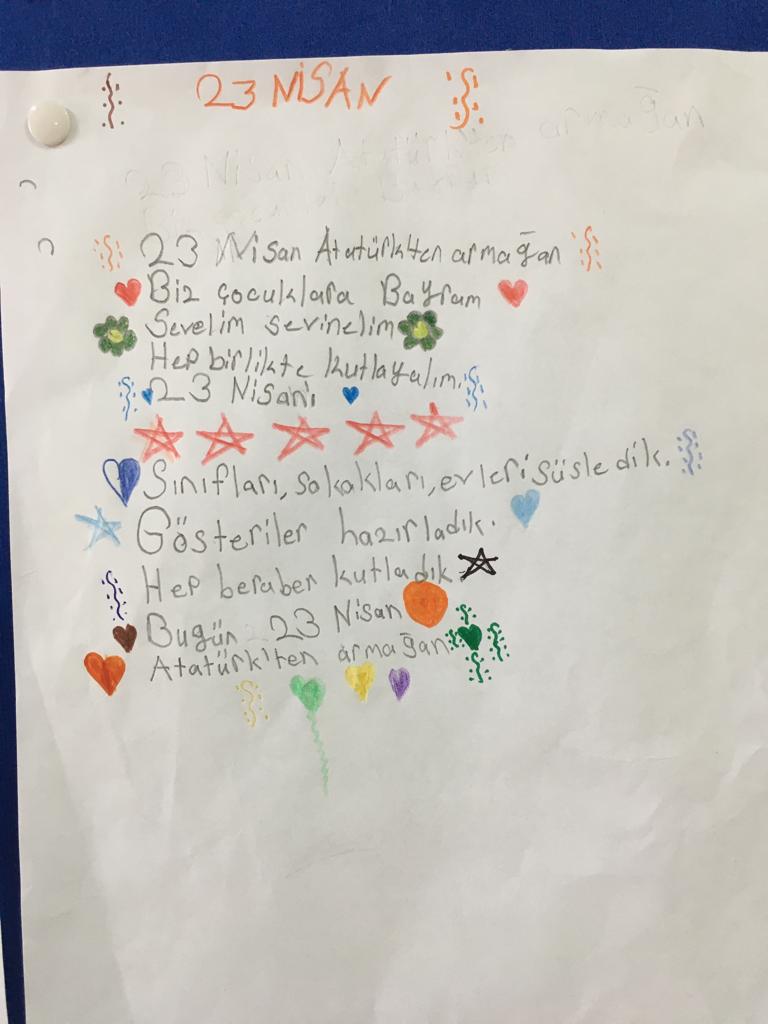 23 NİSAN
23 Nisan Atatürk'ten armağan
Biz çocuklara Bayram
Sevelim sevinelim
Hep birlikte kutlayalım.
23 Nisan'ı
Sınıfları, sokakları, evleri süsledik.
Gösteriler hazırladık.
Hep beraber kutladık.
Bugün 23 Nisan
Atatürk'ten armağan.